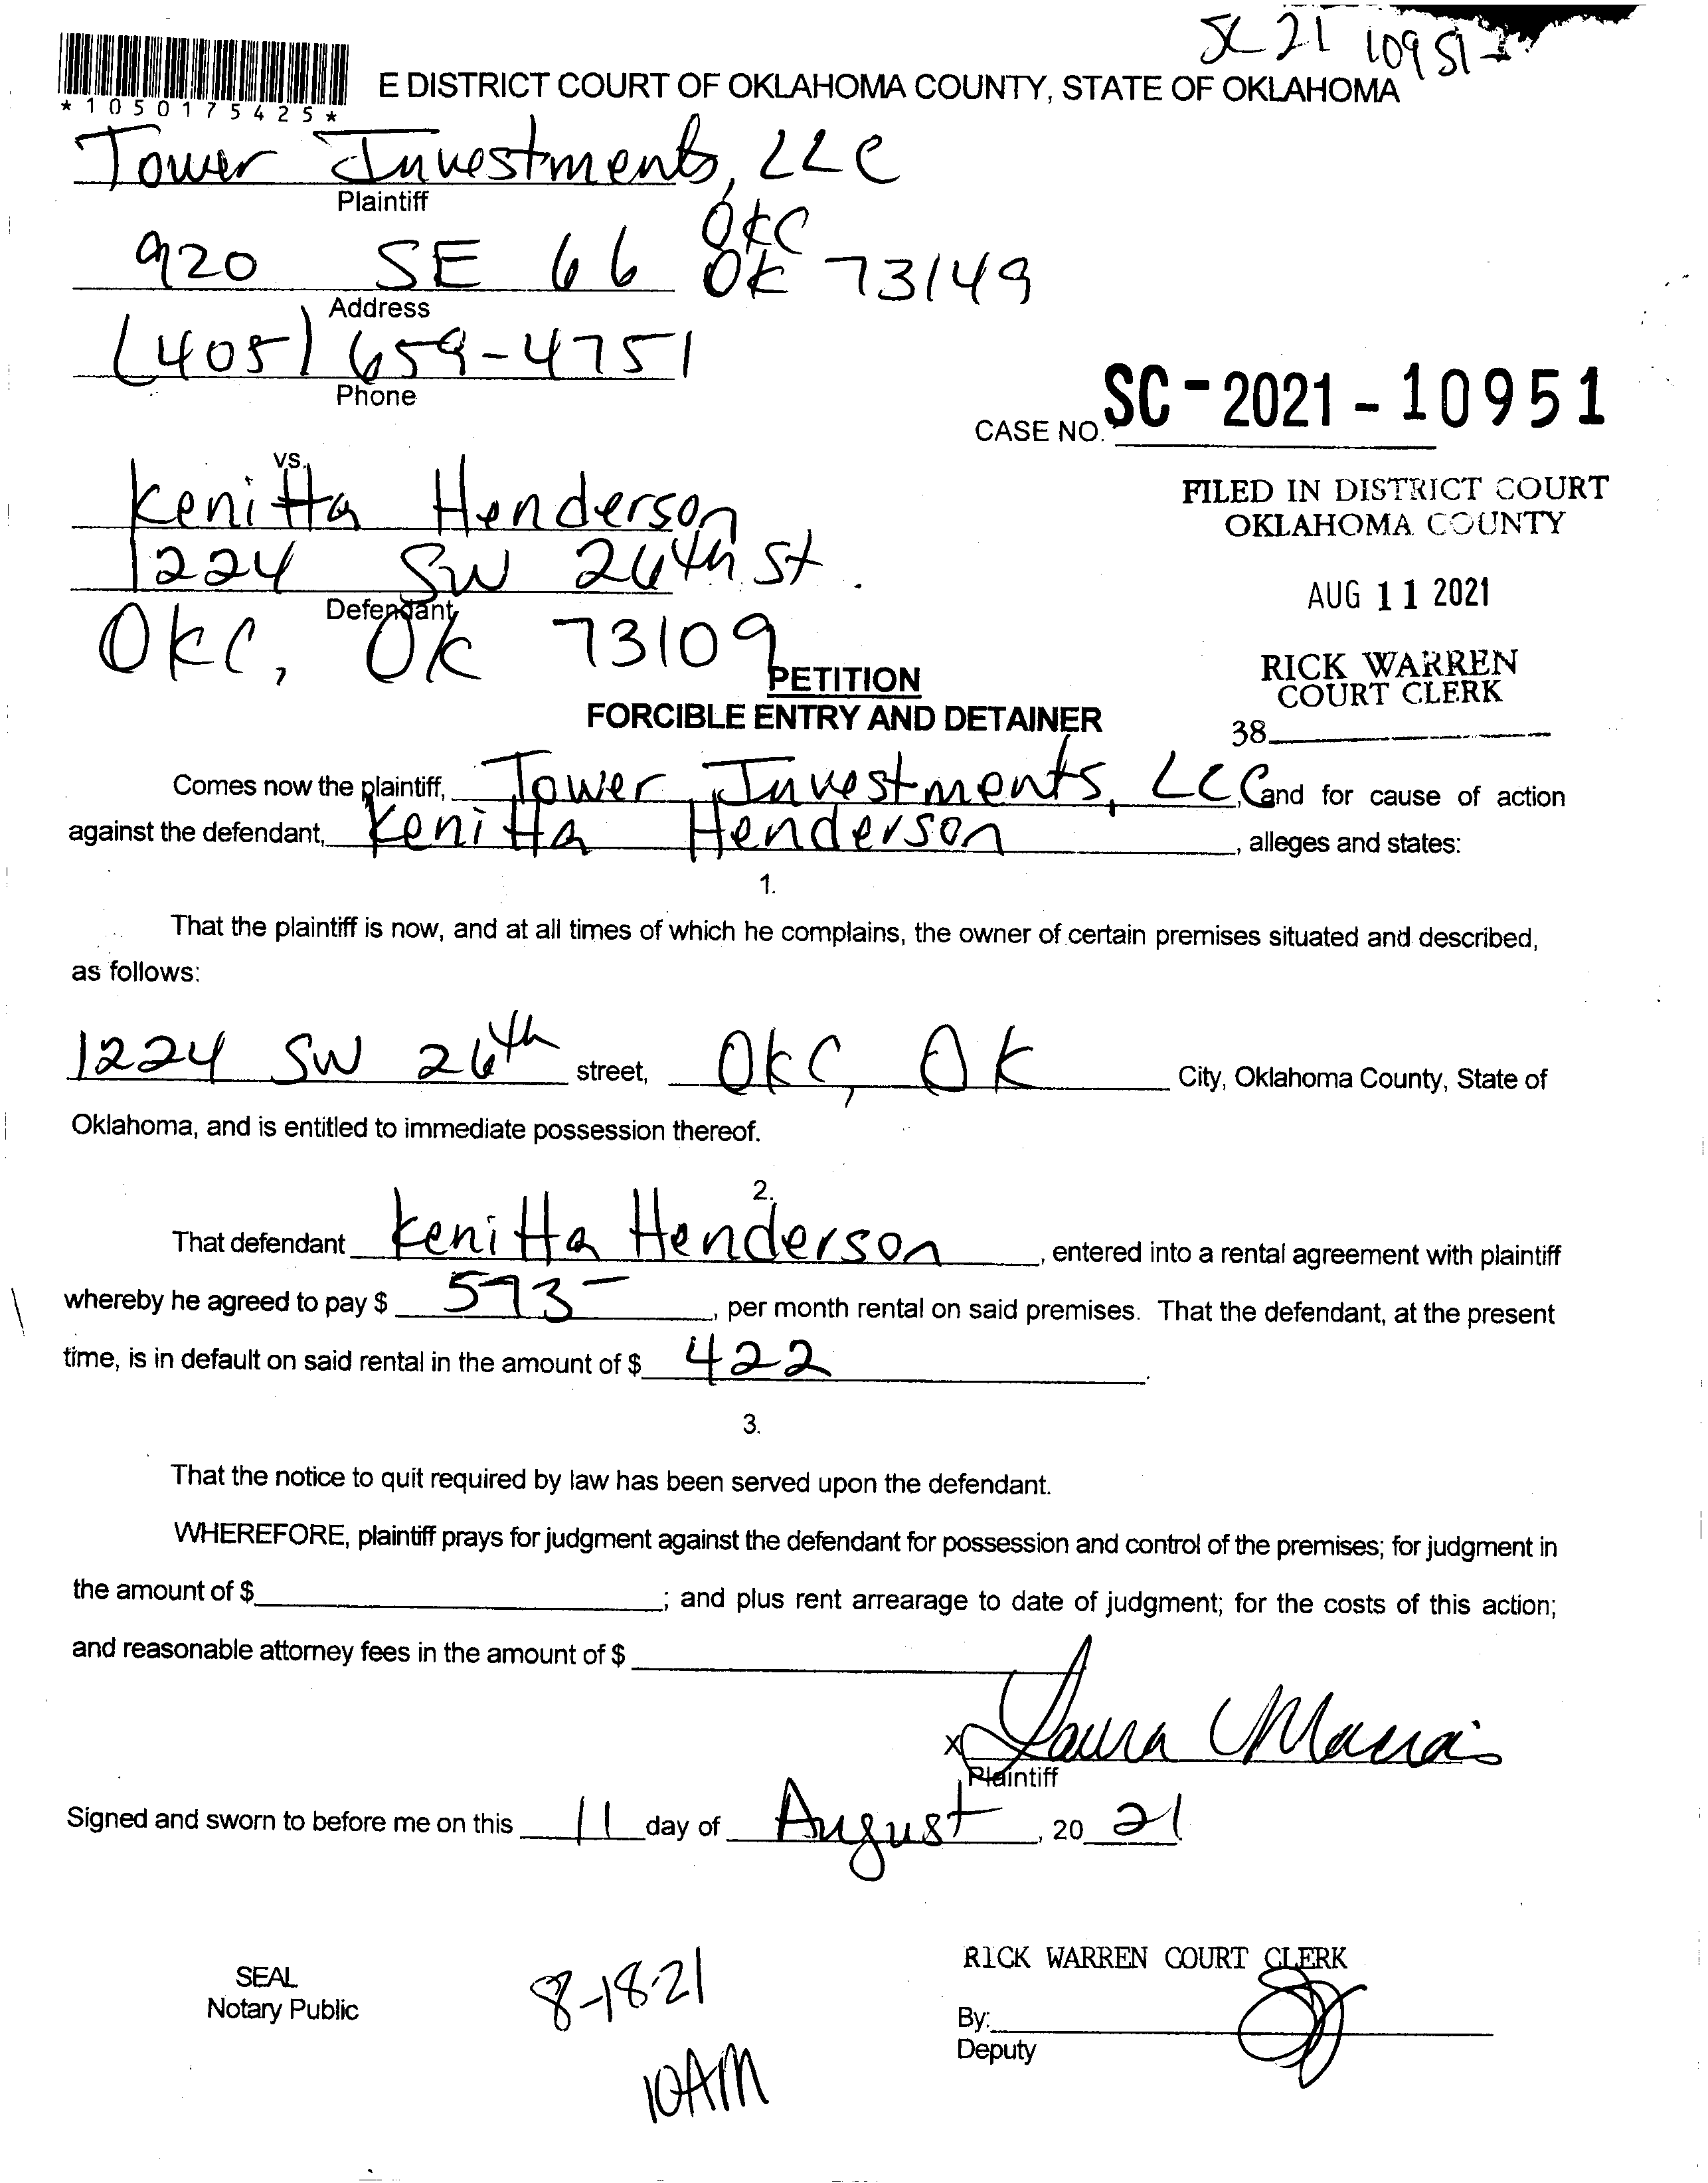 SC 21 10951
*1050175425*
E DISTRICT COURT OF OKLAHOMA COUNTY, STATE OF OKLAHOMA
Tower Investments, LLC
Plaintiff
OKC
920 SE 66 OK 73149
Address
(405) 659-4751
Phone
CASE NO. SC-2021-10951
vs.
Kenitta Henderson
FILED IN DISTRICT COURT
OKLAHOMA COUNTY
1224 SW 26th St.
Defendant
AUG 11 2021
OKC, OK 73109
RICK WARREN
COURT CLERK
PETITION
FORCIBLE ENTRY AND DETAINER
38
Comes now the plaintiff, Tower Investments, LLC, and for cause of action
against the defendant, Kenitta Henderson, alleges and states:
1.
That the plaintiff is now, and at all times of which he complains, the owner of certain premises situated and described,
as follows:
1224 SW 26th street, OKC, OK City, Oklahoma County, State of
Oklahoma, and is entitled to immediate possession thereof.
2.
That defendant Kenitta Henderson, entered into a rental agreement with plaintiff
whereby he agreed to pay $ , per month rental on said premises. That the defendant, at the present
time, is in default on said rental in the amount of $ 422.
3.
That the notice to quit required by law has been served upon the defendant.
WHEREFORE, plaintiff prays for judgment against the defendant for possession and control of the premises; for judgment in
the amount of $ ; and plus rent arrearage to date of judgment; for the costs of this action;
and reasonable attorney fees in the amount of $
x Laura Macias
Plaintiff
Signed and sworn to before me on this 11 day of August, 20 21
SEAL
Notary Public
8-18-21
10AM
RICK WARREN COURT CLERK
By:
Deputy